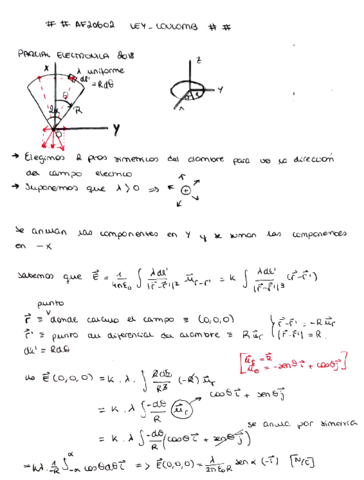 # # AF20602 LEY_COULOMB # #
PARCIAL ELECTRONICA 2018
X
λ uniforme
dl'
= Rdθ
θ
R
2α
Y
Z
Y
X
→ Elegimos 2 ptos simetricos del alambre para ver la dirección
del campo electrico
→ Suponemos que λ > 0 ⇒
se anulan las componentes en Y y se suman las componentes
en -x
sabemos que E⃗ = 1/4πε₀ ∫ λdl'/|r⃗-r⃗'|² u⃗r-r' = k ∫ λdl'/|r⃗-r⃗'|³ (r⃗-r⃗')
punto
r⃗ = donde calculo el campo = (0,0,0)
r⃗' = punto del diferencial de alambre = R u⃗r
{ r⃗-r⃗' = -R u⃗r
|r⃗-r⃗'| = R
dl' = Rdθ
[ u⃗θ = -senθ i⃗ + cosθ j⃗ ]
E⃗ (0,0,0) = k · λ · ∫ Rdθ/R³ (-R) u⃗r
= k · λ ∫ -dθ/R (u⃗r) → cosθ i⃗ + senθ j⃗
se anula por simetria
= k · λ ∫ -dθ/R (cosθ i⃗ + senθ j⃗)
= kλ · 1/-R ∫ -α α cosθ dθ i⃗ => E⃗(0,0,0) = λ/2πε₀R sen α (-i⃗) [N/C]